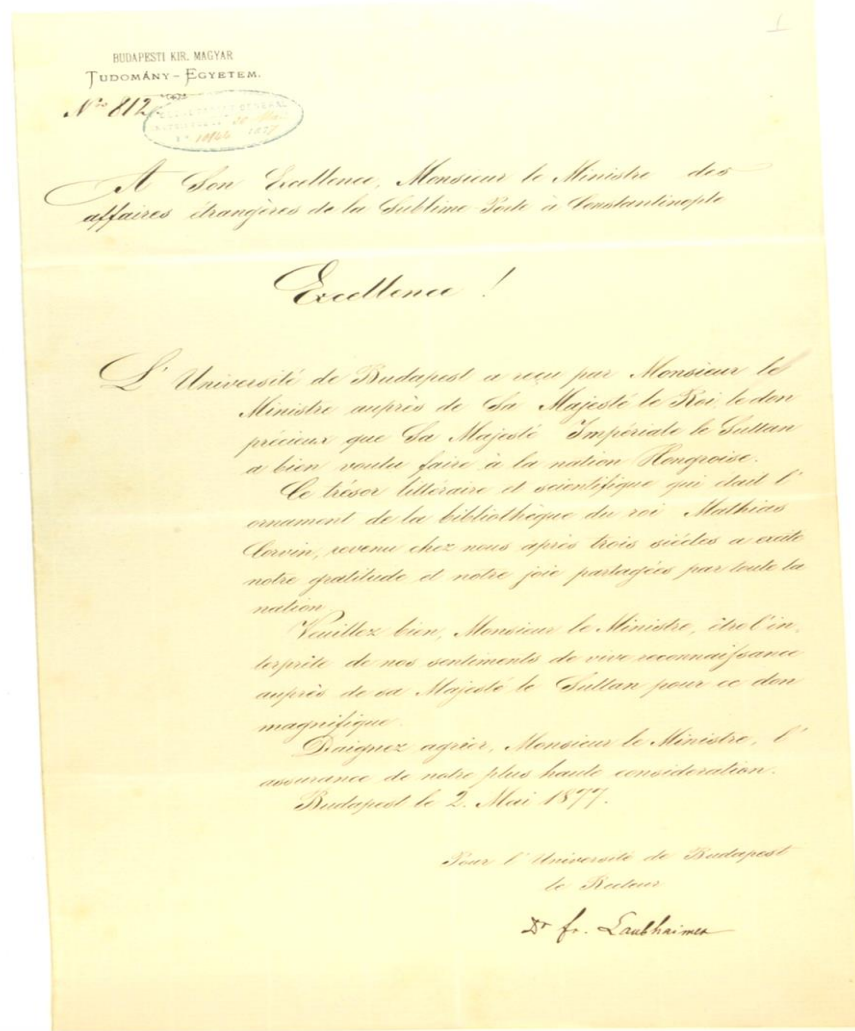 1
BUDAPESTI KIR. MAGYAR
TUDOMÁNY-EGYETEM.
Nro 812.
1877
A Son Excellence, Monsieur le Ministre des
affaires étrangères de la Sublime Porte à Constantinople
Excellence !
L'Université de Budapest a reçu par Monsieur le
Ministre auprès de Sa Majesté le Roi le don
précieux que Sa Majesté Impériale le Sultan
a bien voulu faire à la nation Hongroise.
Ce trésor littéraire et scientifique qui était l'
ornament de la bibliothèque du roi Mathias
Corvin, revenu chez nous après trois siécles a excité
notre gratitude et notre joie partagées par toute la
nation.
Veuillez bien, Monsieur le Ministre, être l'in-
terprète de nos sentiments de vive reconnaissance
auprès de sa Majesté le Sultan pour ce don
magnifique.
Daignez agréer, Monsieur le Ministre, l'
assurance de notre plus haute consideration.
Budapest le 2. Mai 1877.
Pour l'Université de Budapest
le Recteur
Dr fr. Laubhaimer